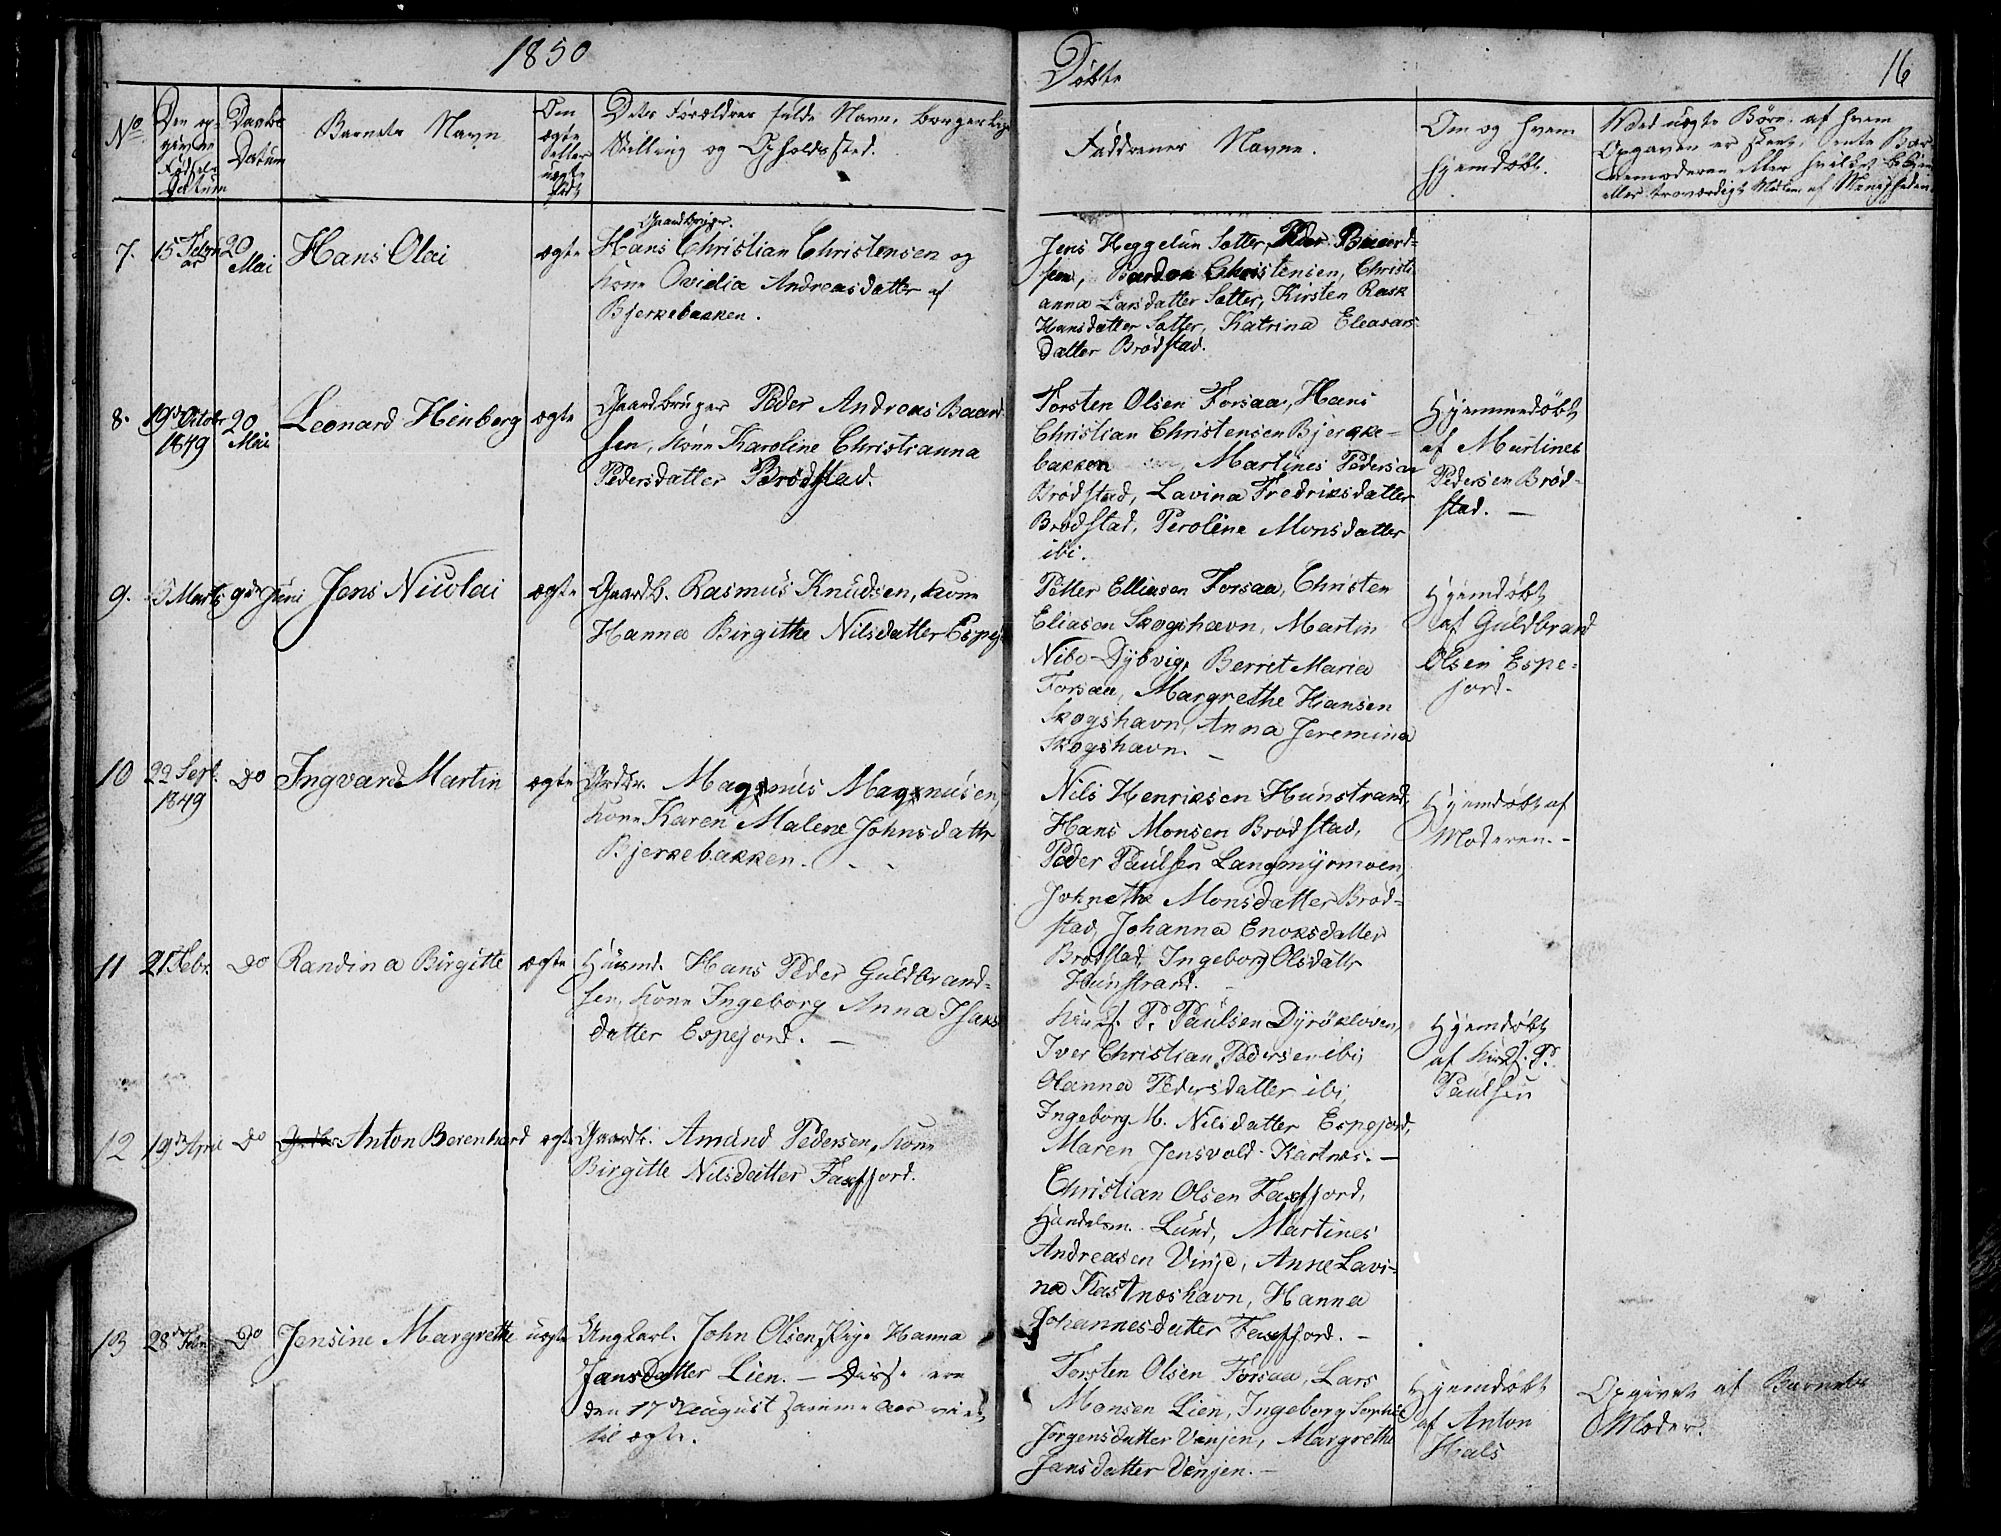 1850
Døbte
16
No
Den op-
given
Fødsels
Datum
Daabs
Datum
Barnets Navn
Om
ægte
eller
uægte
født
Dets Forældres fulde Navn, borgerlige
Stilling og Opholdssted.
Faddrenes Navne.
Om og hvem
hjemdøbt.
Ved uægte Børn: af hvem
Opgaven er skeet, Barnemoderen eller
eller troværdigt Medlem af Menigheden
7.
15 Febru
ar
20
Mai
Hans Olai
ægte
Gaardbruger.
Hans Christian Christensen og
Kone Ovidia Andreasdatter af
Bjerkebakken.
Jens Heggelun Sætter, Peder Baard-
sen, Bardon Christensen, Christi
anna Larsdatter Sætter, Kirsten Rask
Hansdatter Sætter, Katrina Eleasars
datter Brødstad.
8.
19de October
1849
20
Mai
Leonard Hinberg
ægte
Gaardbruger Peder Andreas Baard
sen, Kone Karoline Christianna
Pedersdatter Brødstad.
Torsten Olsen Forsaa, Hans
Christian Christensen Bjerke-
bakken, Martines Pedersen
Brødstad, Lavina Fredriksdatter
Brødstad, Peroline Monsdatter
ibi.
Hjemmedøbt
af Martines
Pedersen Brød-
stad. —
9.
5 Marts
9de Juni
Jens Nicolai
ægte
Gaardb. Rasmus Knudsen, Kone
Hanna Birgithe Nilsdatter Espej
Petter Elliasen Forsaa, Christen
Eliasen Skogshavn, Martin
Nibo-Dybvig, Berret Maria
Forsaa, Margrethe Hansen
Skogshavn, Anna Jeremina
Skogshavn. —
Hjemdøbt
af Guldbrand
Olsen Espe-
jord.
10
22 Sept.
1849
Do
Ingvard Martin
ægte
Grdbr. Magnus Magnusen,
Kone Karen Malene Johnsdattr
Bjerkebakken.
Nils Henriksen Hunstrand,
Hans Monsen Brødstad,
Peder Paulsen Langmyrmoen,
Johnethe Monsdatter Brød-
stad, Johanna Enoksdatter
Brødstad, Ingeborg Olsdattr
Hunstrand. —
Hjemdøbt af
Moderen. -
11
21 Febr.
Do
Randina Birgitte
ægte
Huusmd. Hans Peder Guldbrand-
sen, Kone Ingeborg Anna Isaks
datter Espejord. —
P. Paulsen Dyrökloven,
Iver Christian Pedersen ibi,
Olanna Pedersdatter ibi,
Ingeborg M. Nilsdatter Espejord,
Maren Jensvold Kartnes. —
Hjemdøbt
af P.
Paulsen
12
19de April
Do
Anton Berenhard
ægte
Gaardb. Amund Pedersen, Kone
Birgitte Nilsdatter Faxfjord.
Christian Olsen Faxfjord,
Handelsm. Lund, Martines
Andreasen Vinje, Anne Lavi-
na Kastneshavn, Hanna
Johannesdatter Faxfjord. —
13
28de Febr
Do
Jensine Margrethe
uægte
Ungkarl. John Olsen, Pige Hanna
Jansdatter Lien. — Disse ere
den 17de August samme Aar viet
til ægte.
Torsten Olsen Forsaa, Lars
Monsen Lien, Ingeborg Sophie
Jørgensdatter Venjen, Margrethe
Jansdatter Venjen. —
Hjemdøbt
af Anton
Hals
Opgivet af Barnets
Moder.